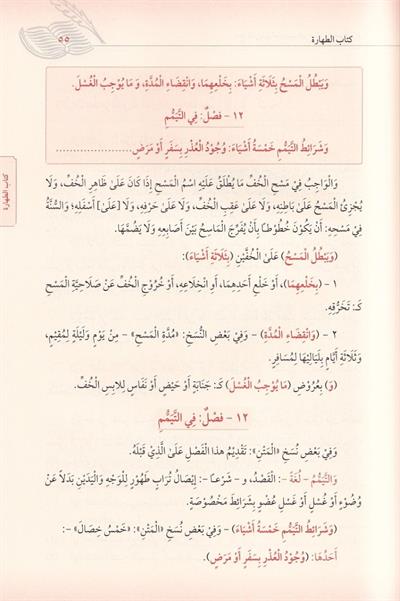 كتاب الطهارة
٥٥
وَيَبْطُلُ الْمَسْحُ بِثَلَاثَةِ أَشْيَاءَ: بِخَلْعِهِمَا، وَانْقِضَاءِ الْمُدَّةِ، وَمَا يُوْجِبُ الْغُسْلَ.
١٢ - فَصْلٌ: فِي التَّيَمُّمِ
وَشَرَائِطُ التَّيَمُّمِ خَمْسَةُ أَشْيَاءَ: وُجُوْدُ الْعُذْرِ بِسَفَرٍ أَوْ مَرَضٍ.....................
وَالْوَاجِبُ فِيْ مَسْحِ الْخُفِّ مَا يُطْلَقُ عَلَيْهِ اسْمُ الْمَسْحِ إِذَا كَانَ عَلَىٰ ظَاهِرِ الْخُفِّ، وَلَا
يُجْزِئُ الْمَسْحُ عَلَىٰ بَاطِنِهِ، وَلَا عَلَىٰ عَقِبِ الْخُفِّ، وَلَا عَلَىٰ حَرْفِهِ، وَلَا [عَلَىٰ] أَسْفَلِهِ؛ وَالسُّنَّةُ
فِيْ مَسْحِهِ: أَنْ يَكُوْنَ خُطُوْطًا بِأَنْ يُفَرِّجَ الْمَاسِحُ بَيْنَ أَصَابِعِهِ وَلَا يَضُمَّهَا.
(وَيَبْطُلُ الْمَسْحُ) عَلَى الْخُفَّيْنِ (بِثَلَاثَةِ أَشْيَاءَ):
١ - (بِخَلْعِهِمَا)، أَوْ خَلْعِ أَحَدِهِمَا، أَوِ انْخِلَاعِهِ، أَوْ خُرُوْجِ الْخُفِّ عَنْ صَلَاحِيَّةِ الْمَسْحِ
كَـ: تَخَرُّقِهِ.
٢ - (وَانْقِضَاءِ الْمُدَّةِ) - وَفِيْ بَعْضِ النُّسَخِ: «مُدَّةِ الْمَسْحِ» - مِنْ يَوْمٍ وَلَيْلَةٍ لِمُقِيْمٍ،
وَثَلَاثَةِ أَيَّامٍ بِلَيَالِيْهَا لِمُسَافِرٍ.
(وَ) بِعُرُوْضِ (مَا يُوْجِبُ الْغُسْلَ) كَـ: جَنَابَةٍ أَوْ حَيْضٍ أَوْ نَفَاسٍ لِلَابِسِ الْخُفِّ.
١٢ - فَصْلٌ: فِي التَّيَمُّمِ
وَفِيْ بَعْضِ نُسَخِ «الْمَتْنِ»: تَقْدِيْمُ هٰذَا الْفَصْلِ عَلَى الَّذِيْ قَبْلَهُ.
وَالتَّيَمُّمُ - لُغَةً -: الْقَصْدُ، وَ - شَرْعًا -: إِيْصَالُ تُرَابٍ طَهُوْرٍ لِلْوَجْهِ وَالْيَدَيْنِ بَدَلًا عَنْ
وُضُوْءٍ أَوْ غُسْلٍ أَوْ غَسْلِ عُضْوٍ بِشَرَائِطَ مَخْصُوْصَةٍ.
(وَشَرَائِطُ التَّيَمُّمِ خَمْسَةُ أَشْيَاءَ) - وَفِيْ بَعْضِ نُسَخِ «الْمَتْنِ»: «خَمْسُ خِصَالٍ» -:
أَحَدُهَا: (وُجُوْدُ الْعُذْرِ بِسَفَرٍ أَوْ مَرَضٍ).
كتاب الطهارة